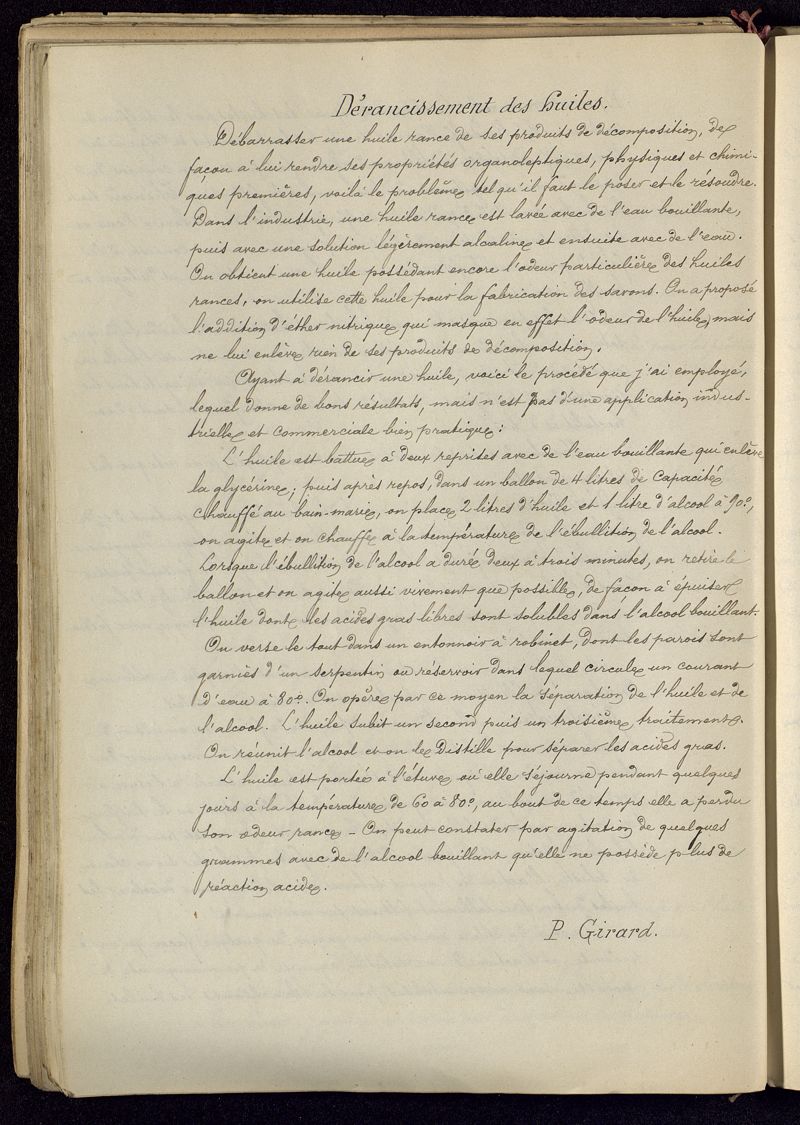 Dérancissement des huiles.
Débarrasser une huile rance de ses produits de décomposition, de
façon à lui rendre ses propriétés organoleptiques, physiques et chimi-
ques premières, voilà le problème tel qu'il faut le poser et le résoudre.
Dans l'industrie, une huile rance est lavée avec de l'eau bouillante,
puis avec une solution légèrement alcaline et ensuite avec de l'eau.
On obtient une huile possédant encore l'odeur particulière des huiles
rances, on utilise cette huile pour la fabrication des savons. On a proposé
l'addition d'éther nitrique qui masque en effet l'odeur de l'huile, mais
ne lui enlève rien de ses produits de décomposition.
Ayant à dérancir une huile, voici le procédé que j'ai employé,
lequel donne de bons résultats, mais n'est pas d'une application indus-
trielle et commerciale bien pratique :
L'huile est battue à deux reprises avec de l'eau bouillante qui enlève
la glycérine ; puis après repos, dans un ballon de 4 litres de capacité
chauffé au bain-marie, on place 2 litres d'huile et 1 litre d'alcool à 90°,
on agite et on chauffe à la température de l'ébullition de l'alcool.
Lorsque l'ébullition de l'alcool a duré deux à trois minutes, on retire le
ballon et on agite aussi vivement que possible, de façon à épuiser
l'huile dont les acides gras libres sont solubles dans l'alcool bouillant.
On verse le tout dans un entonnoir à robinet, dont les parois sont
garnies d'un serpentin ou réservoir dans lequel circule un courant
d'eau à 80°. On opère par ce moyen la séparation de l'huile et de
l'alcool. L'huile subit un second puis un troisième traitement.
On réunit l'alcool et on le distille pour séparer les acides gras.
L'huile est portée à l'étuve où elle séjourne pendant quelques
jours à la température de 60 à 80°, au bout de ce temps elle a perdu
son odeur rance – On peut constater par agitation de quelques
grammes avec de l'alcool bouillant qu'elle ne possède plus de
réaction acide.
P. Girard.